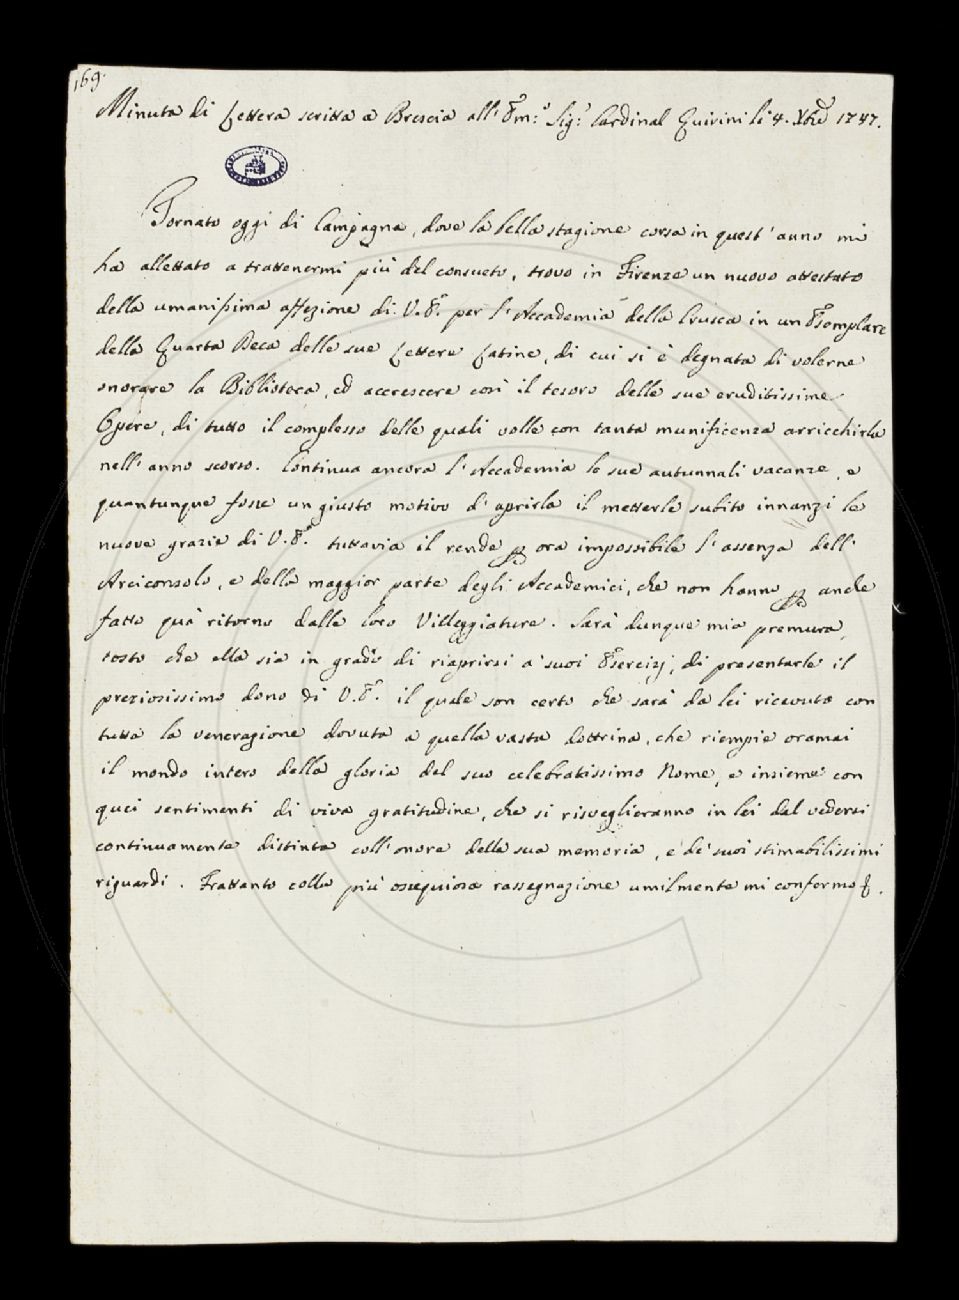 169.
Minuta di Lettera scritta a Brescia all' Em:º Sig:r Cardinal Quirini li 4. Xbre 1747.
Tornato oggi di Campagna, dove la bella stagione corsa in quest' anno mi
ha allettato a trattenermi più del consueto, trovo in Firenze un nuovo attestato
della umanissima affezione di V. Eª. per l' Accademia della Crusca in un Esemplare
della Quarta Deca delle sue Lettere Latine, di cui si è degnata di volerne
onorare la Biblioteca, ed accrescere così il tesoro delle sue eruditissime
Opere, di tutto il complesso delle quali volle con tanta munificenza arricchirla
nell' anno scorso. Continua ancora l' Accademia le sue autunnali vacanze, e
quantunque fosse un giusto motivo d' aprirla il metterle subito innanzi le
nuove grazie di V. Eª. tuttavia il rende per ora impossibile l' assenza dell'
Arciconsolo, e della maggior parte degli Accademici, che non hanno per anche
fatto quà ritorno dalle loro Villeggiature. Sarà dunque mia premura,
tosto che ella sia in grado di riaprirsi a' suoi Esercizj, di presentarle il
preziosissimo dono di V. Eª. il quale son certo che sarà da lei ricevuto con
tutta la venerazione dovuta a quella vasta dottrina, che riempie oramai
il mondo intero della gloria del suo celebratissimo Nome, e insieme con
quei sentimenti di viva gratitudine, che si risveglieranno in lei dal vedersi
continuamente distinta coll' onore della sua memoria, e de' suoi stimabilissimi
riguardi. Frattanto colla più ossequiosa rassegnazione umilmente mi confermo